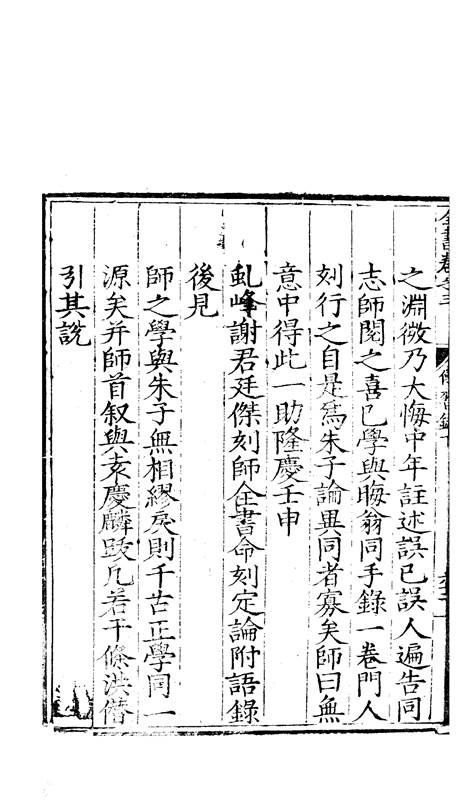 全書卷之三
傳習錄下
之淵微乃大悔中年註述誤已誤人遍告同
志師閱之喜已學與晦翁同手錄一卷門人
刻行之自是爲朱子論異同者寡矣師曰無
意中得此一助隆慶壬申
虬峰謝君廷傑刻師全書命刻定論附語錄
後見
師之學與朱子無相繆戾則千古正學同一
源矣并師首叙與袁慶麟跋凡若干條洪僭
引其說